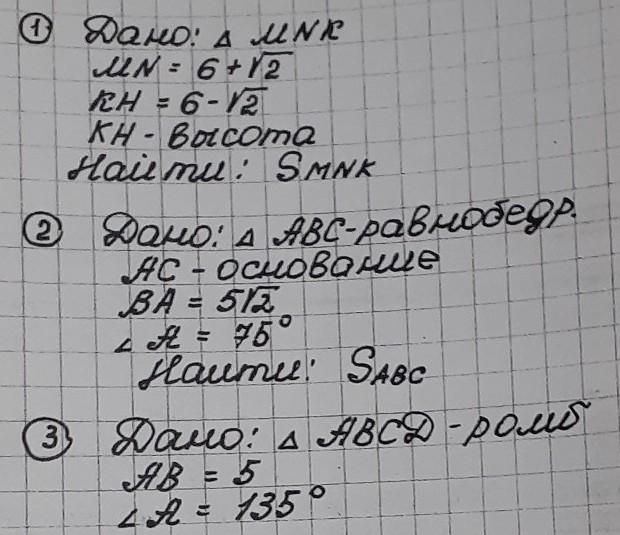 ① Дано: △ MNK
MN = 6 + √2
KH = 6 - √2
KH - высота
Найти: SMNK
② Дано: △ ABC - равнобедр.
AC - основание
BA = 5√2
∠ A = 75°
Найти: SABC
③ Дано: △ ABCD - ромб
AB = 5
∠ A = 135°